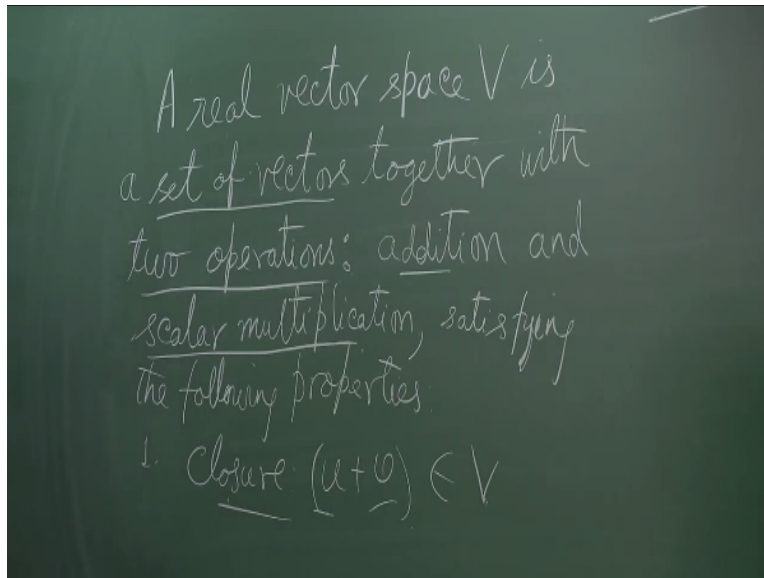 A real vector space V is
a set of vectors together with
two operations: addition and
scalar multiplication, satisfying
the following properties.
1. Closure (u+v) ∈ V